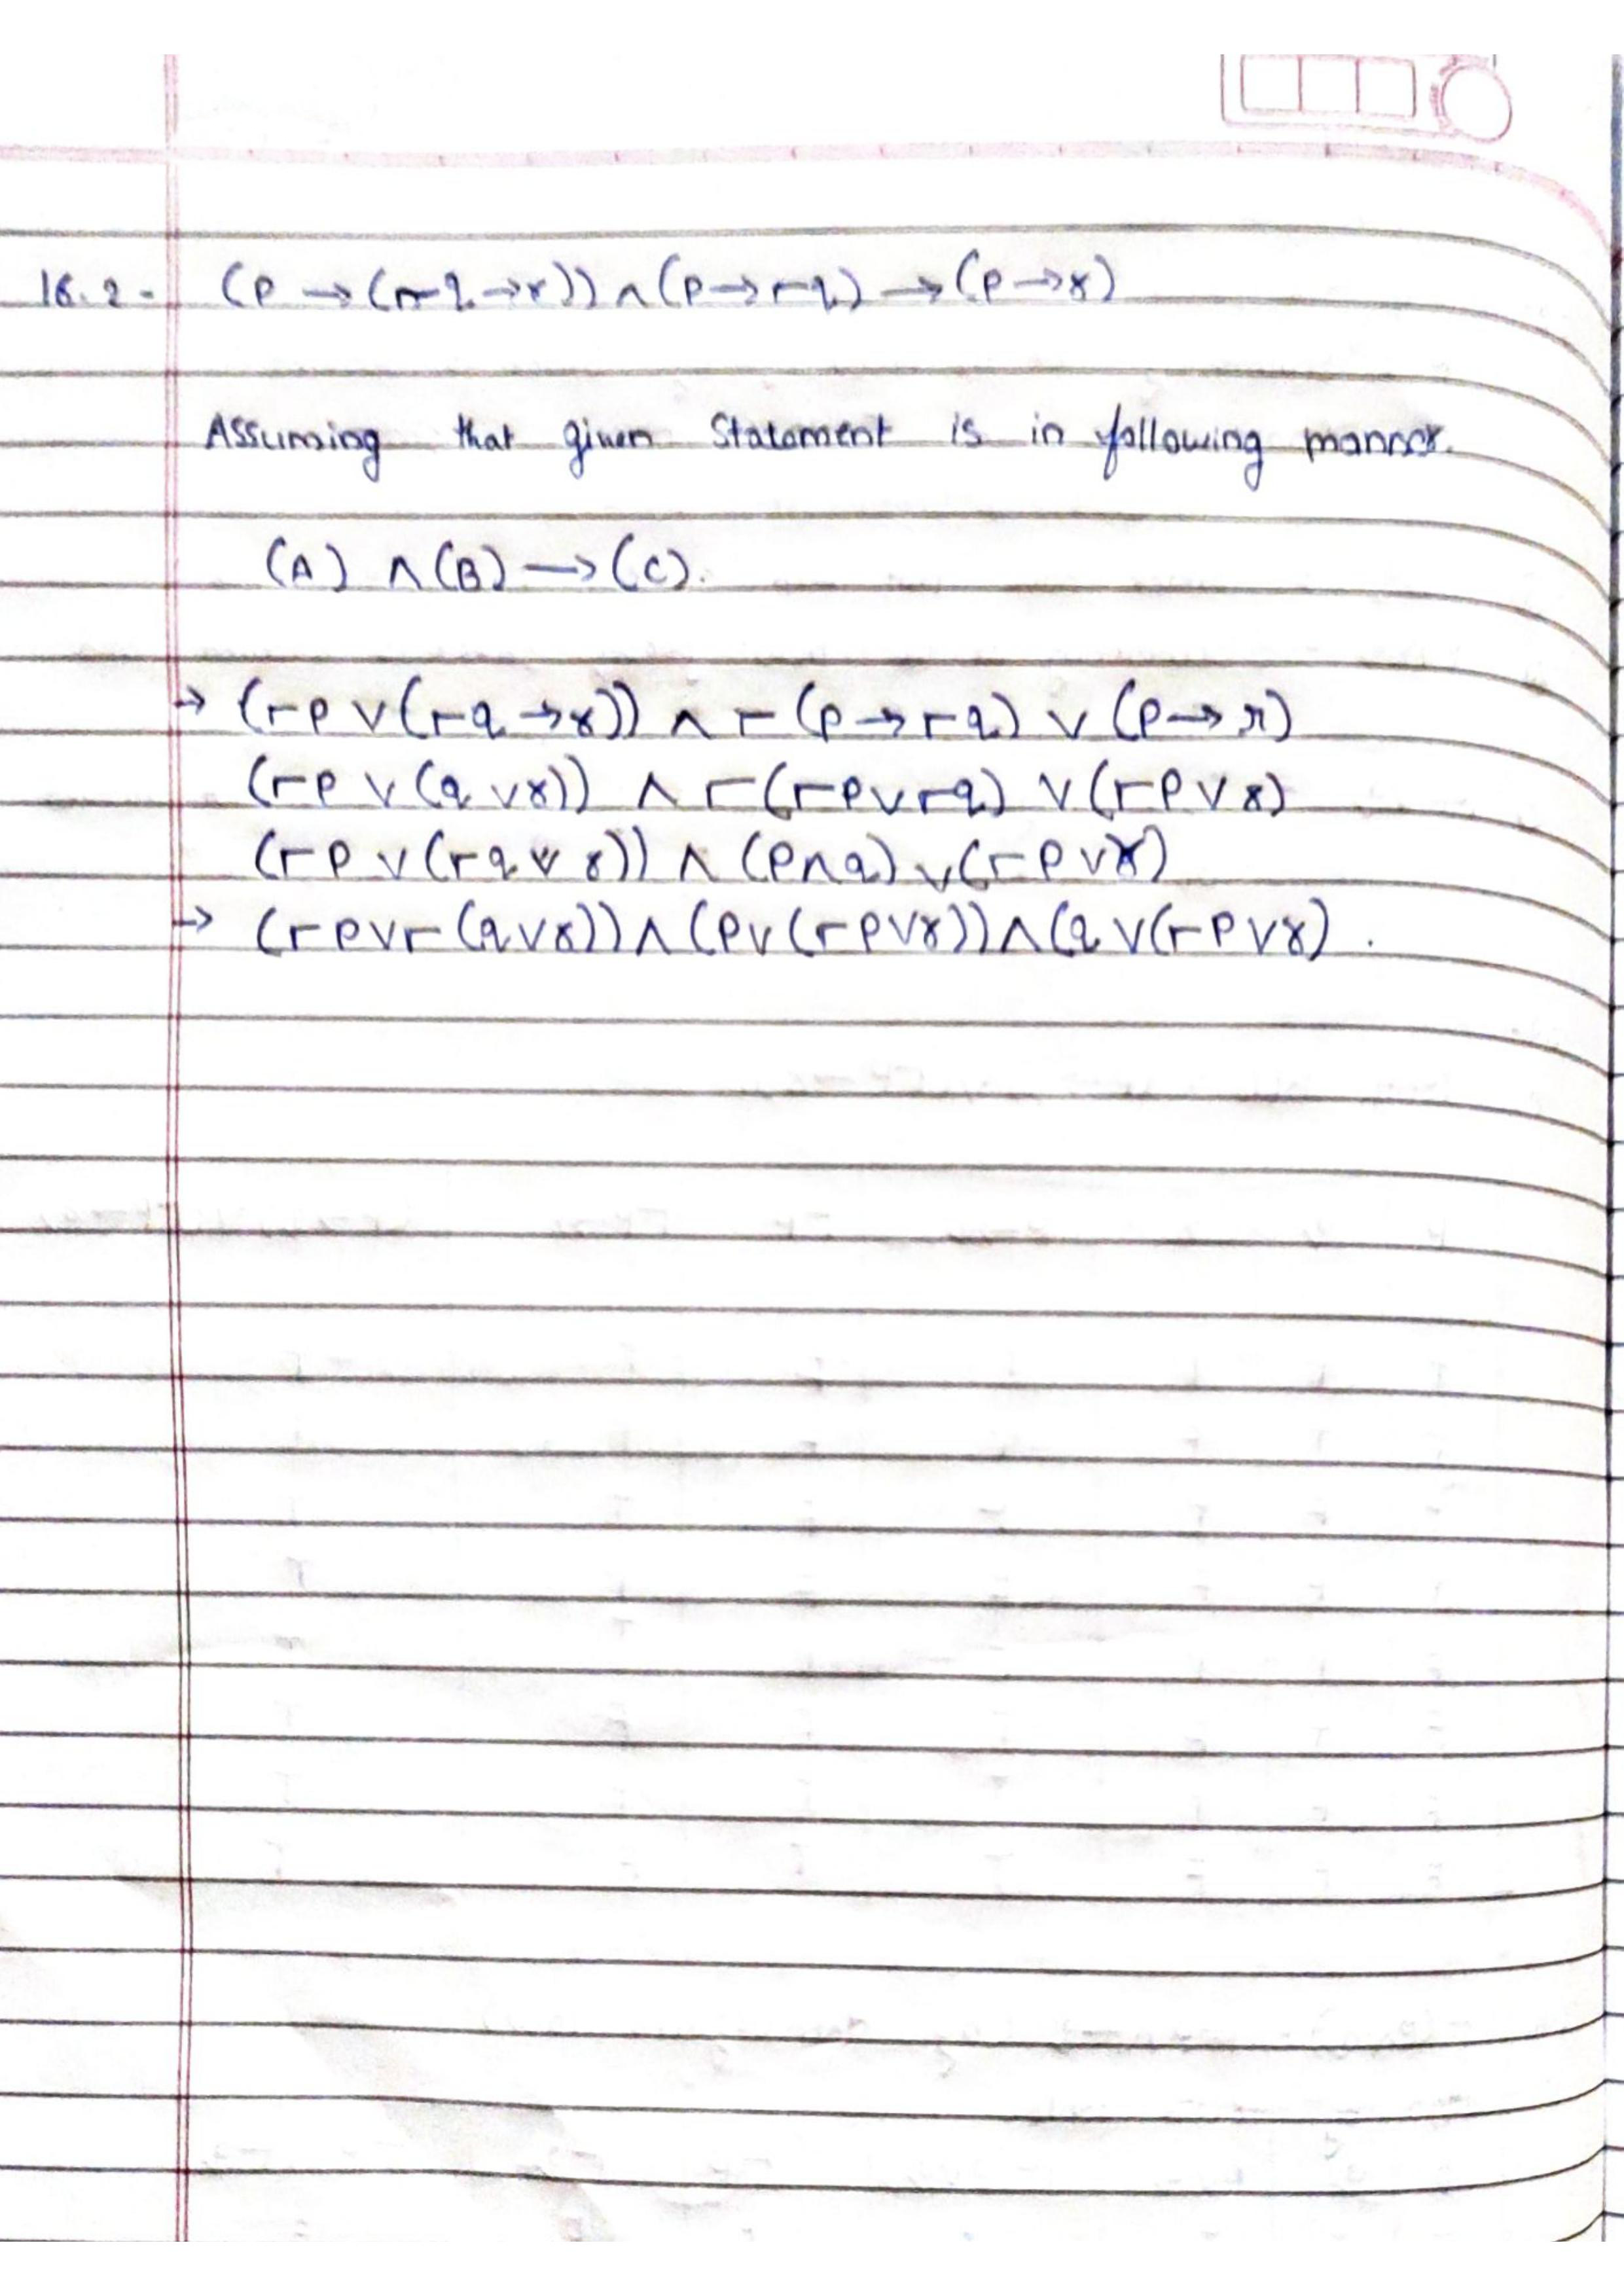 16.2- (p → (¬q → r)) ∧ (p → ¬q) → (p → r)
Assuming that given Statement is in following manner.
(A) ∧ (B) → (C).
→ (¬p ∨ (¬q → r)) ∧ ¬(p → ¬q) ∨ (p → r)
(¬p ∨ (q ∨ r)) ∧ ¬(¬p ∨ ¬q) ∨ (¬p ∨ r)
(¬p ∨ (¬q ∨ r)) ∧ (p ∧ q) ∨ (¬p ∨ r)
→ (¬p ∨ ¬(q ∨ r)) ∧ (p ∨ (¬p ∨ r)) ∧ (q ∨ (¬p ∨ r) .